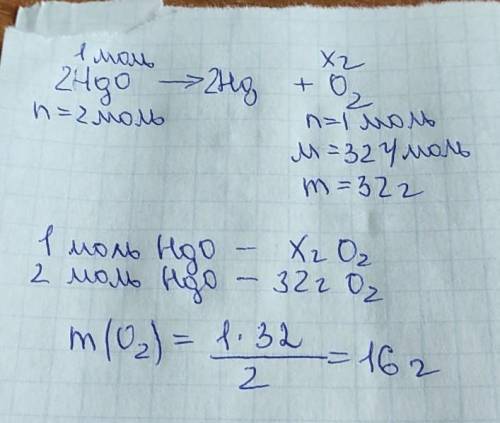 1 моль хг
2HgO → 2Hg + O2
n=2 моль n=1 моль
M=32 г/моль
m=32 г
1 моль HgO – хг O2
2 моль HgO – 32г O2
m(O2) = 1·32/2 = 16 г